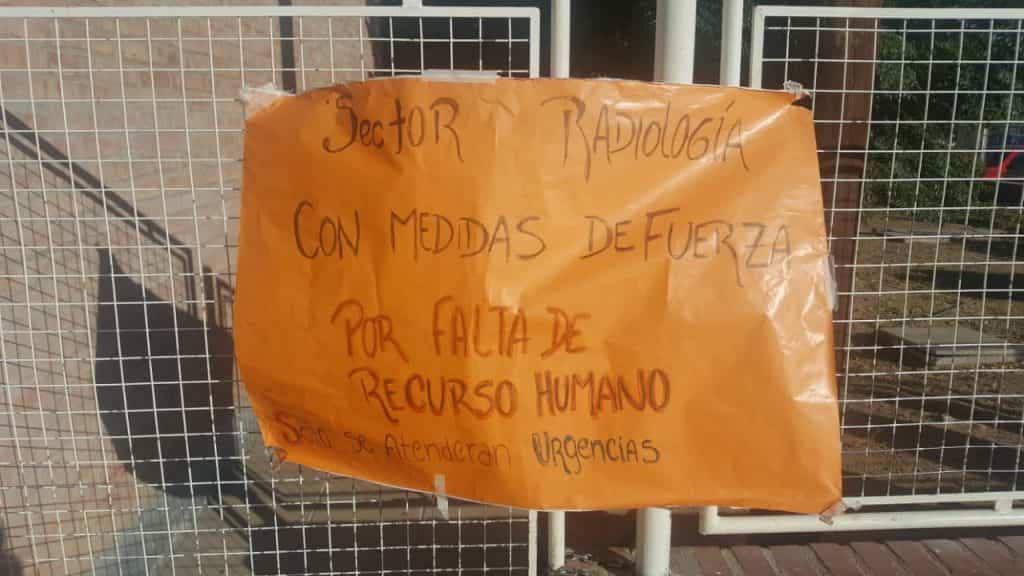 Sector RADIOLOGÍA
CON MEDIDAS DE FUERZA
POR FALTA DE
RECURSO HUMANO
Solo se Atenderan URgencias